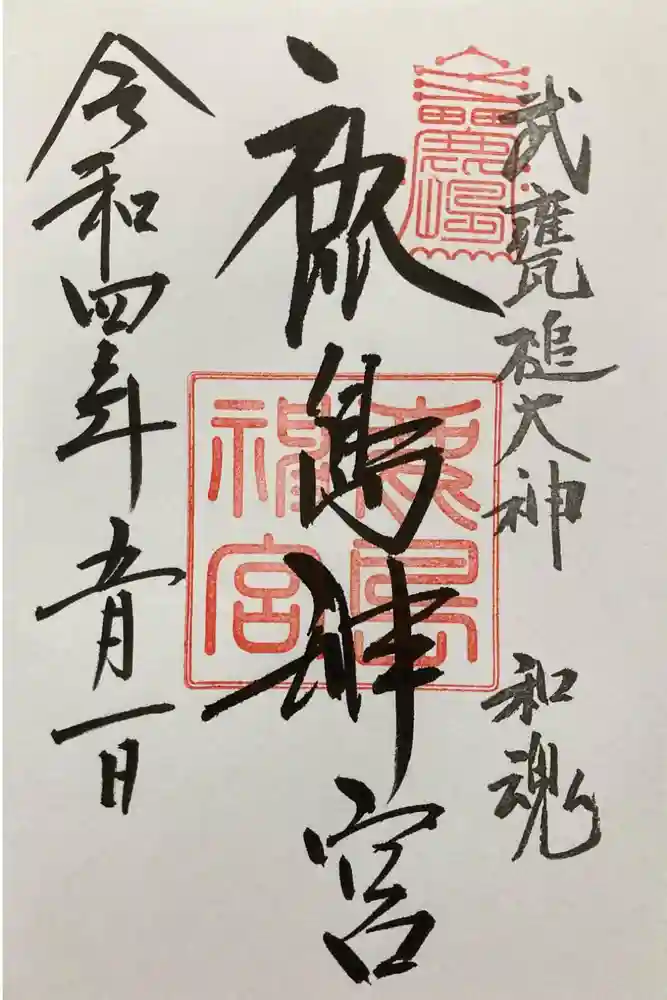 武甕槌大神 和魂
鹿嶋
鹿島神宮
鹿島
神宮
令和四年五月一日